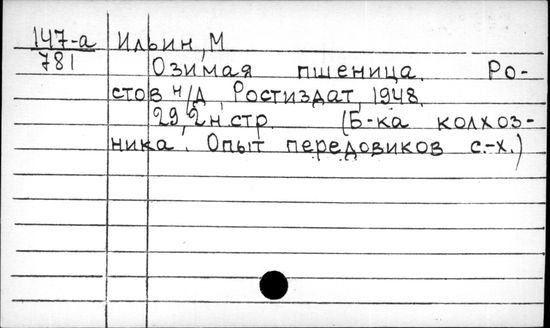 147-а Ильин, М
781
Озимая пшеница. Ро-
стов н/Д, Ростиздат, 1948.
29,2н стр. (Б-ка колхоз-
ника. Опыт передовиков с.-х.)